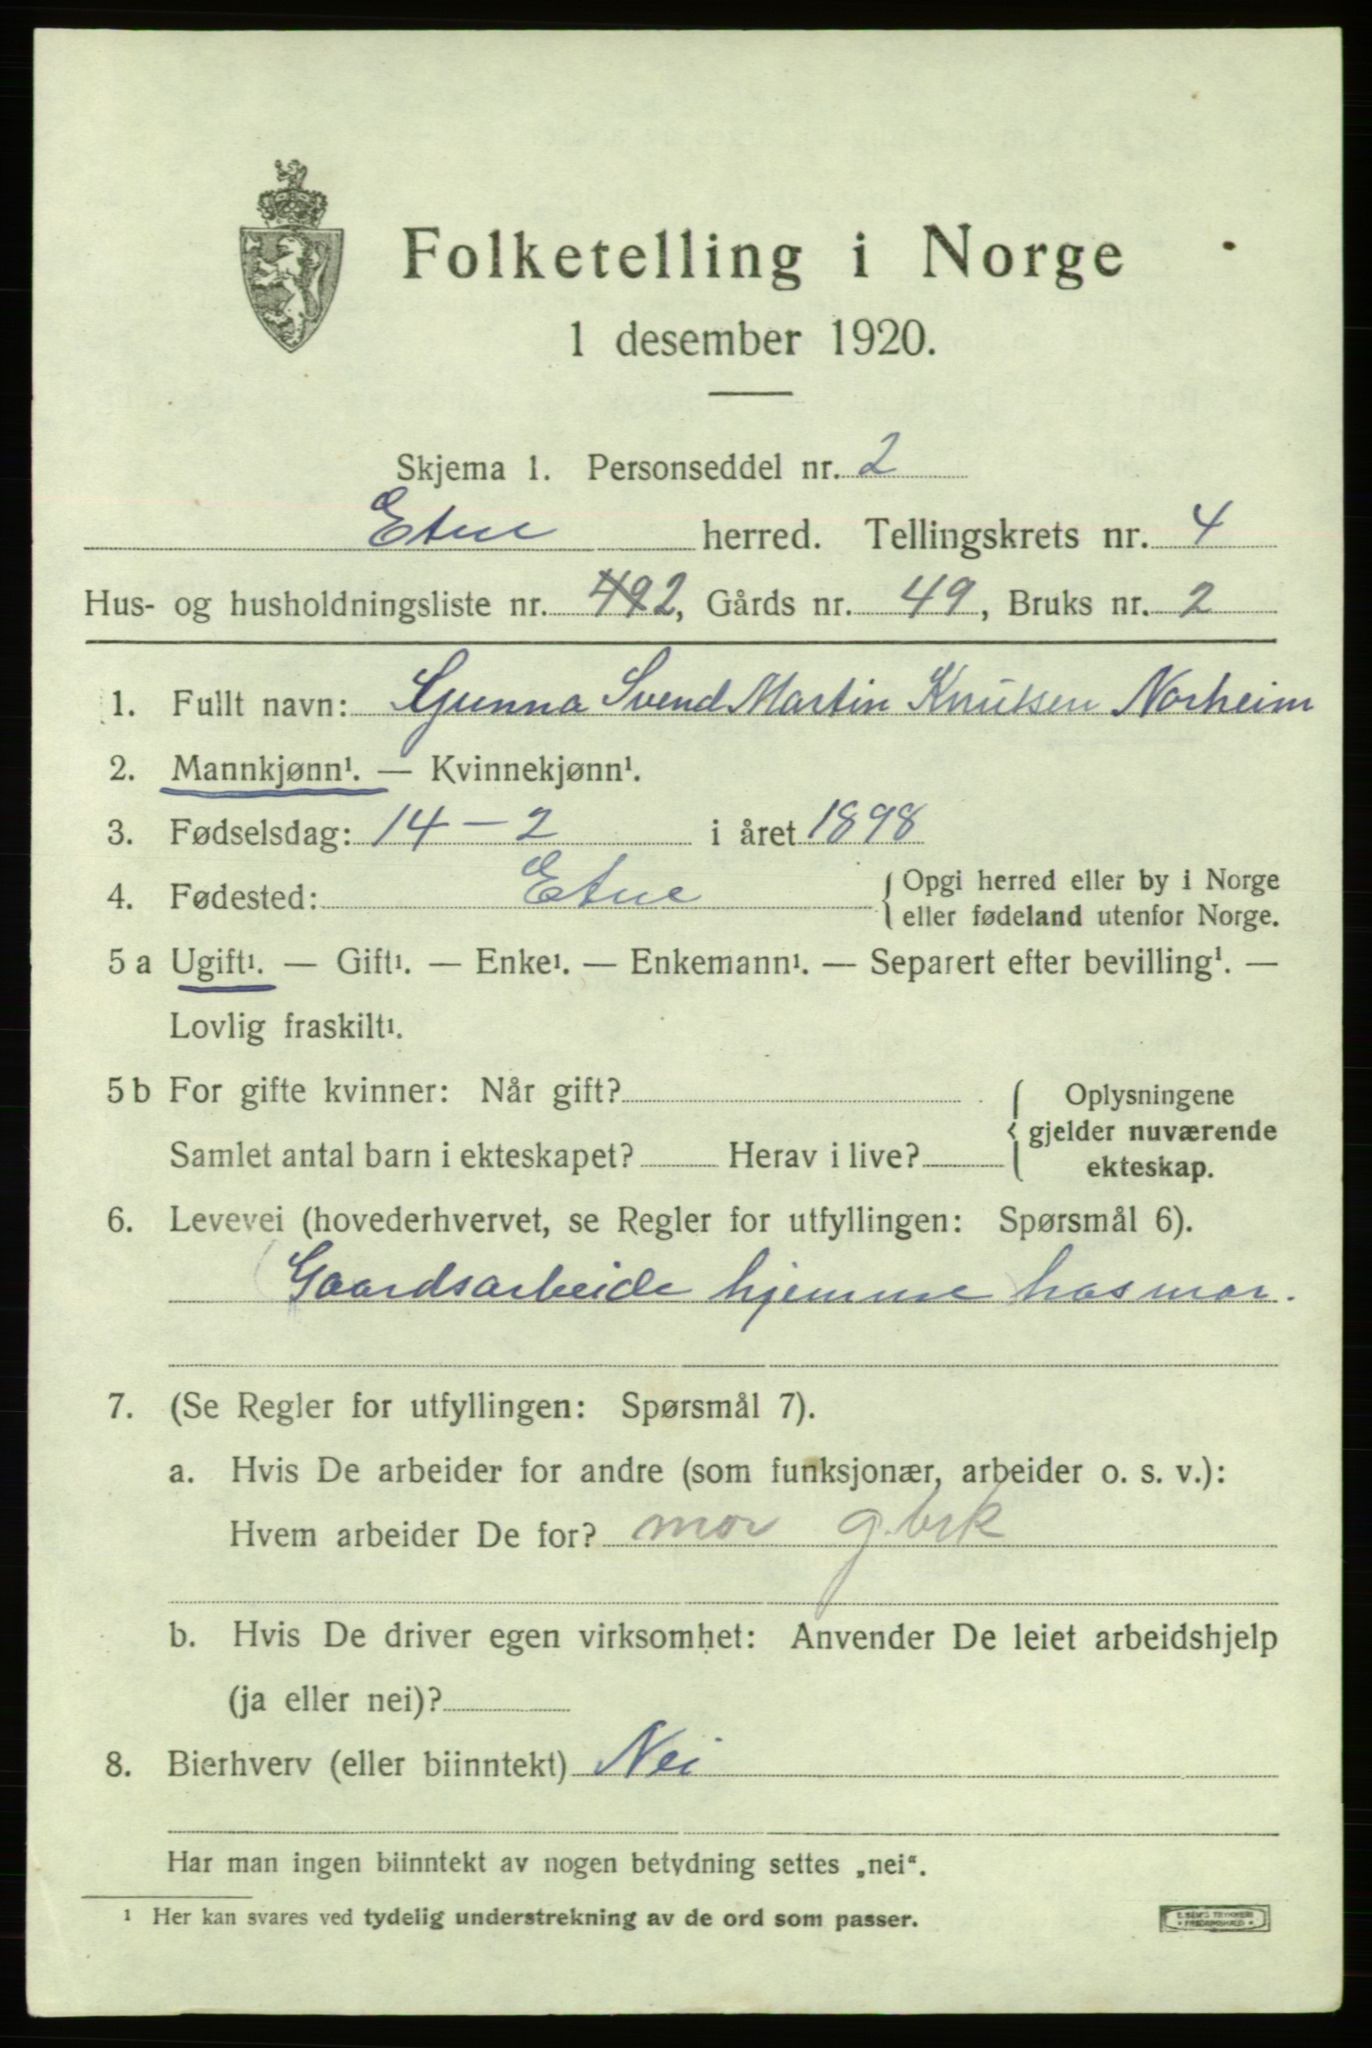 Folketelling i Norge
1 desember 1920.
Skjema 1. Personseddel nr. 2
Etne herred. Tellingskrets nr. 4
Hus- og husholdningsliste nr. 492, Gårds nr. 49, Bruks nr. 2
1. Fullt navn: Gunna Svend Martin Knutsen Norheim
2. Mannkjønn¹. — Kvinnekjønn¹.
3. Fødselsdag: 14 - 2 i året 1898
4. Fødested: Etne { Opgi herred eller by i Norge
eller fødeland utenfor Norge.
5 a Ugift¹. — Gift¹. — Enke¹. — Enkemann¹. — Separert efter bevilling¹. —
Lovlig fraskilt¹.
5 b For gifte kvinner: Når gift? { Oplysningene
gjelder nuværende
Samlet antal barn i ekteskapet? Herav i live? ekteskap.
6. Levevei (hovederhvervet, se Regler for utfyllingen: Spørsmål 6).
Gaardsarbeide hjemme hos mor.
7. (Se Regler for utfyllingen: Spørsmål 7).
a. Hvis De arbeider for andre (som funksjonær, arbeider o. s. v.):
Hvem arbeider De for? mor g.brk
b. Hvis De driver egen virksomhet: Anvender De leiet arbeidshjelp
(ja eller nei)?
8. Bierhverv (eller biinntekt) Nei
Har man ingen biinntekt av nogen betydning settes „nei“.
¹ Her kan svares ved tydelig understrekning av de ord som passer.